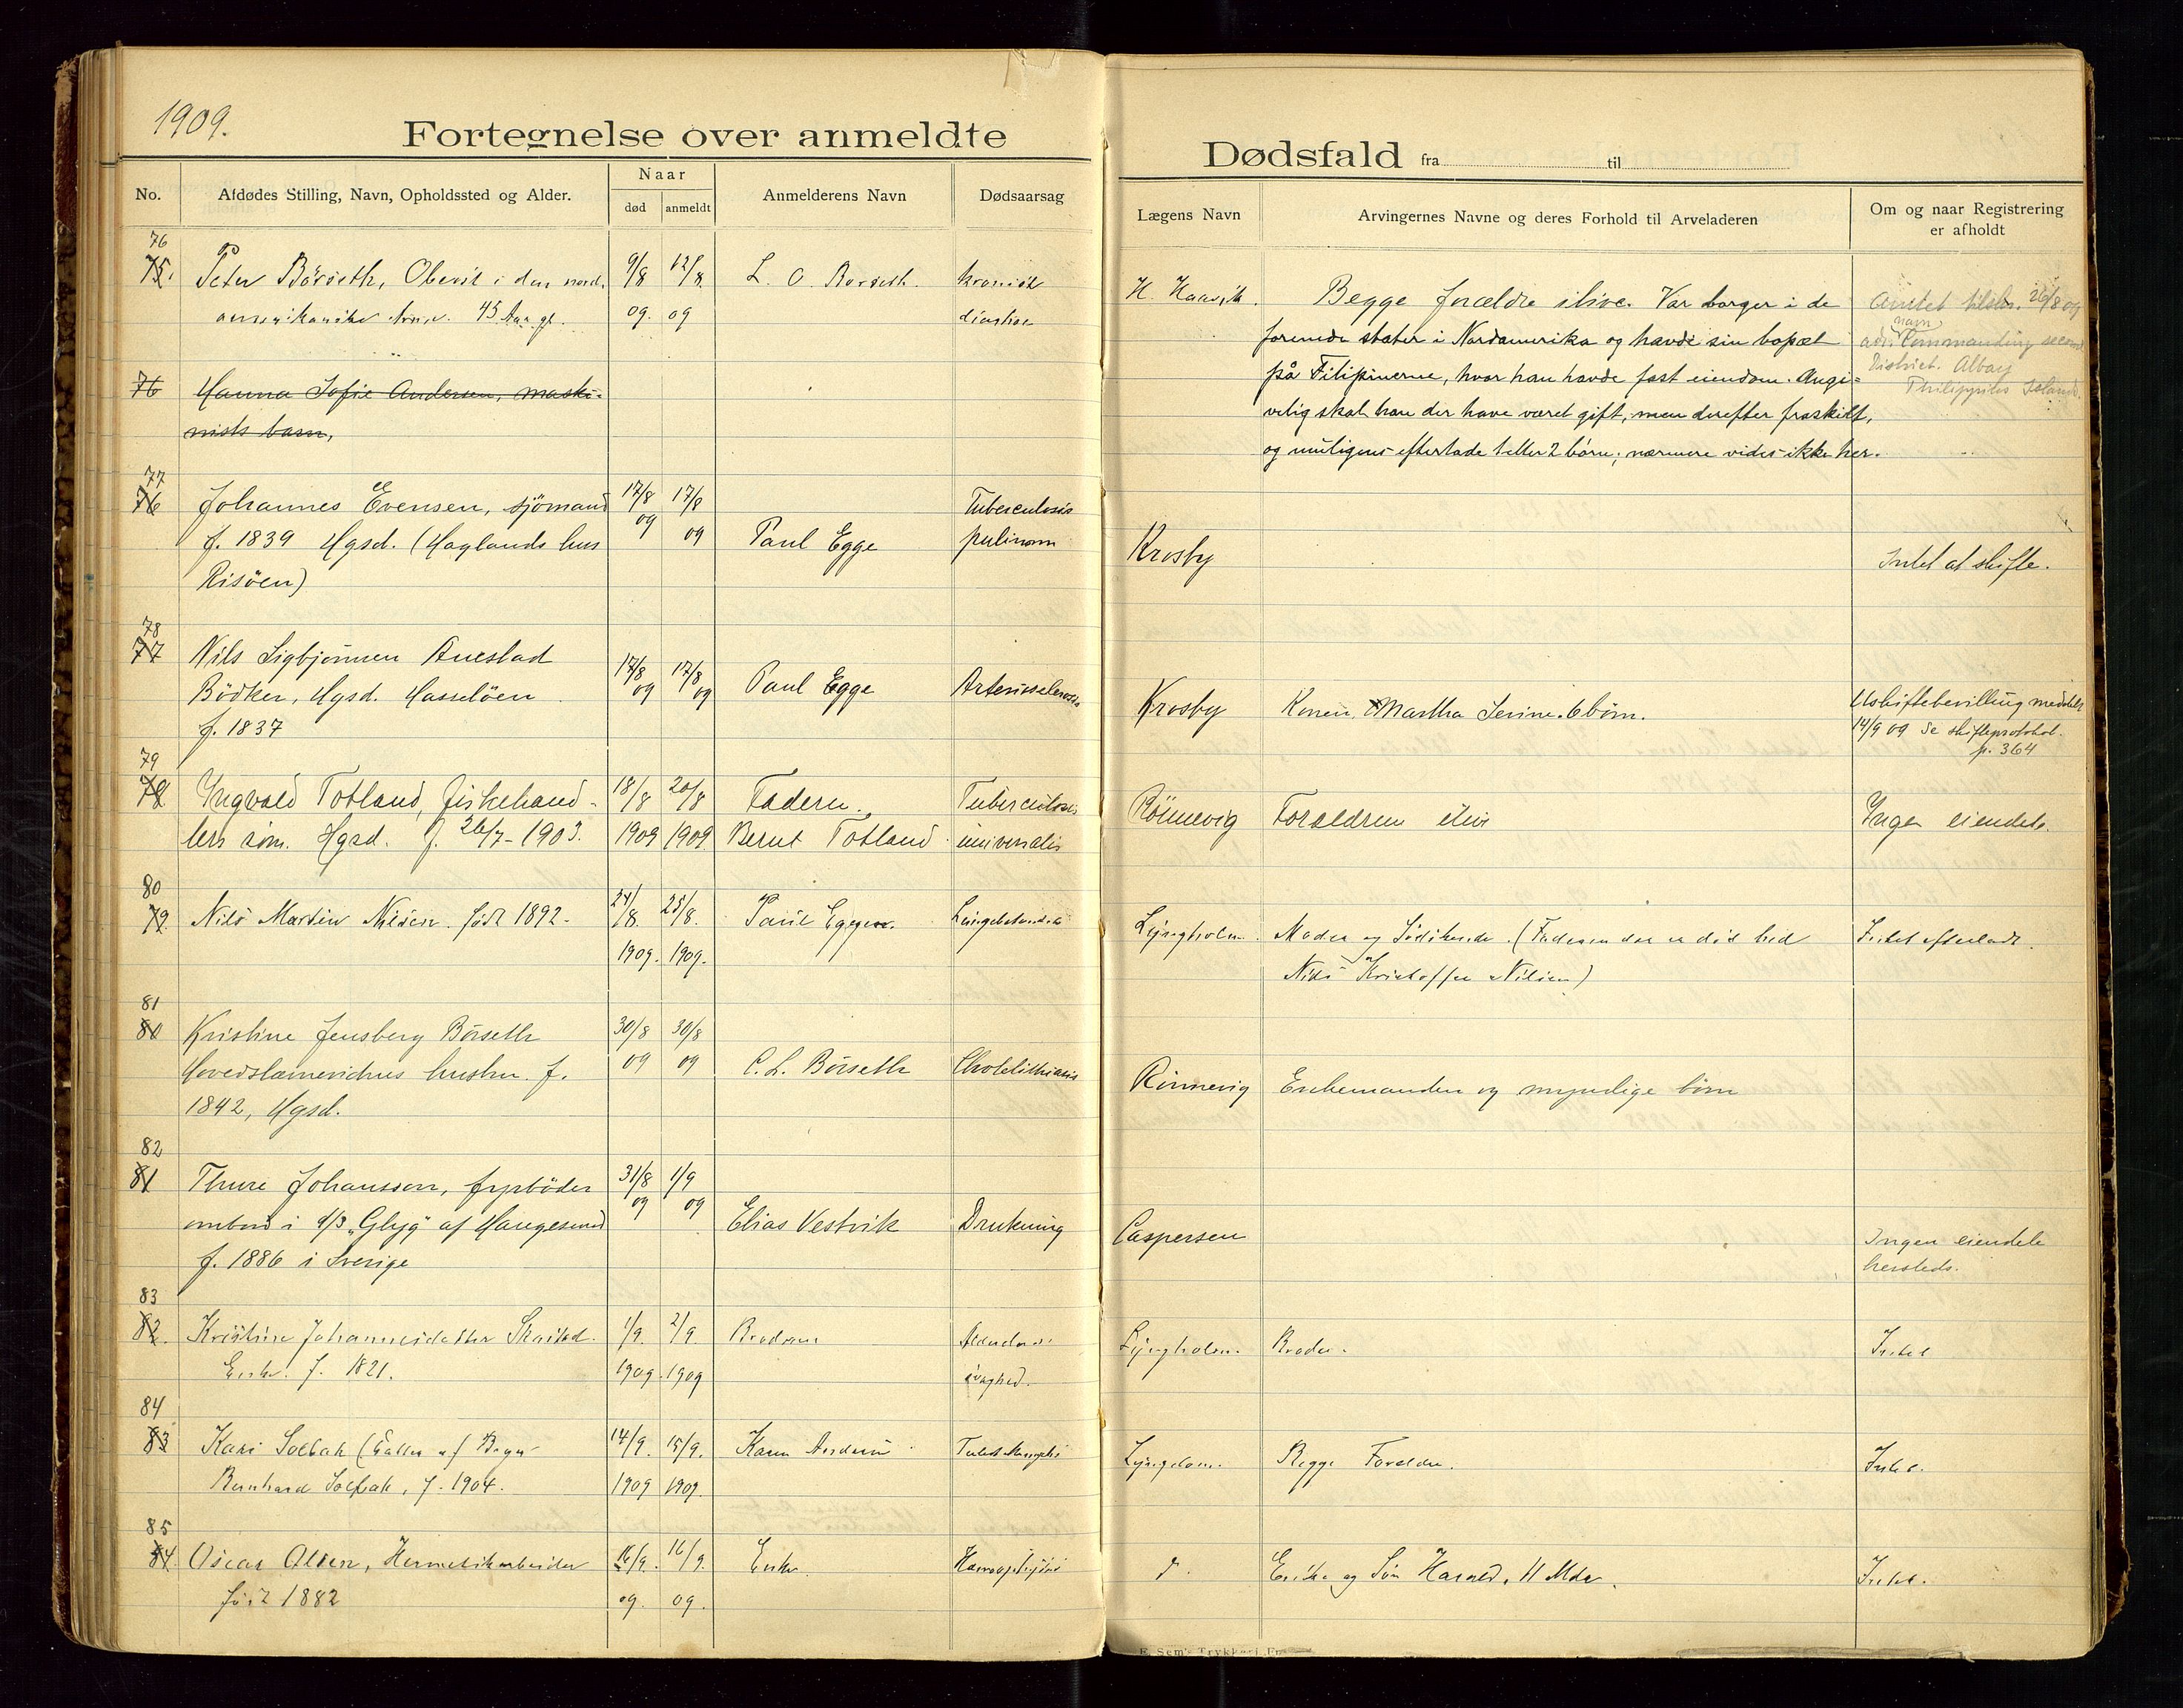 1909.
Fortegnelse over anmeldte
Dødsfald fra til
No.
Afdødes Stilling, Navn, Opholdssted og Alder.
Naar
død
anmeldt
Anmelderens Navn
Dødsaarsag
Lægens Navn
Arvingernes Navne og deres Forhold til Arveladeren
Om og naar Registrering
er afholdt
76
75. Peter Börseth, i den nord. 9/8 12/8. L. O. Børseth. kronisk
amerikanske 45 Aar gl. 09. 09
H. Haavik. Begge forældre ilive. Var borger i de
forenede stater i Nordamerika og havde sin bopæl
på Filipinerne, hvor han havde fast eiendom. Angi=
velig skal han der have været gift, men derefter fraskilt,
og muligens efterlade 1 eller 2 börn; nærmere vides ikke her.
26/8 09
Commanding second
District. Albay
76 Hanna Sofie Andersen, maski-
nists barn,
77
76 Johannes Evensen, sjömand 17/8 17/8 Tuberculosis
f. 1839 Hgsd. (Haglands hus 09 09 Paul Egge pulmon
Risöen)
Krosby Intet at skifte.
78
77 Nils Sigbjörnsen Auestad
Bödker, Hgsd. Hasselöen 17/8 09 17/8 09 Paul Egge Arteriosclerosis
f. 1837
Krosby Konen, Martha Serine. 6 börn. Uskiftebevilling meddelt
14/9 09 Se skifteprotokol.
p. 364
79
78 Yngvald Totland, fiskehand- 18/8 20/8 Faderen. Tuberculosis
lers søn. Hgsd. f. 26/7-1903. 1909 1909. Bernt Totland universalis
Rönnevig Foreldrene ilive Ingen eiendele.
80
79. Nils Martin Nilsen. født 1892. 24/8. 25/8. Paul Egge
1909. 1909.
Lyngholm. Moder og Södskende. (Faderen der er död hed Intet efterladt.
Nils Kristoffer Nilsen)
81
80 Kristine Jensberg Börseth 30/8 30/8
hustru. f. 09 09 C. L. Börseth Cholelithiasis
1842, Hgsd.
Rönnevig Enkemanden og myndige börn
82
81 Thure Johansson, fyrböder 31/8 1/9
ombord i d/s „Glyg" af Haugesund 09 09 Elias Vestvik Drukning
f. 1886 i Sverige
Caspersen Ingen eiendele
hersteds.
83
82. Kristine Johannesdatter 1/9. 2/9
Enke. f. 1821. 1909. 1909 svaghed.
Lyngholm. Broder. Intet
84
83 Kari Solbak (Datter af 14/9. 15/9. Karen
Bernhard Solbak, f. 1904. 1909 1909.
Begge Foreldre. Intet.
85
84. Oscar Olsen, Hermetikarbeider 16/9. 16/9. Enke.
født 1882 09. 09.
Enke og Sön Harald, 11 Mdr. Intet.
E. Sem's Trykkeri